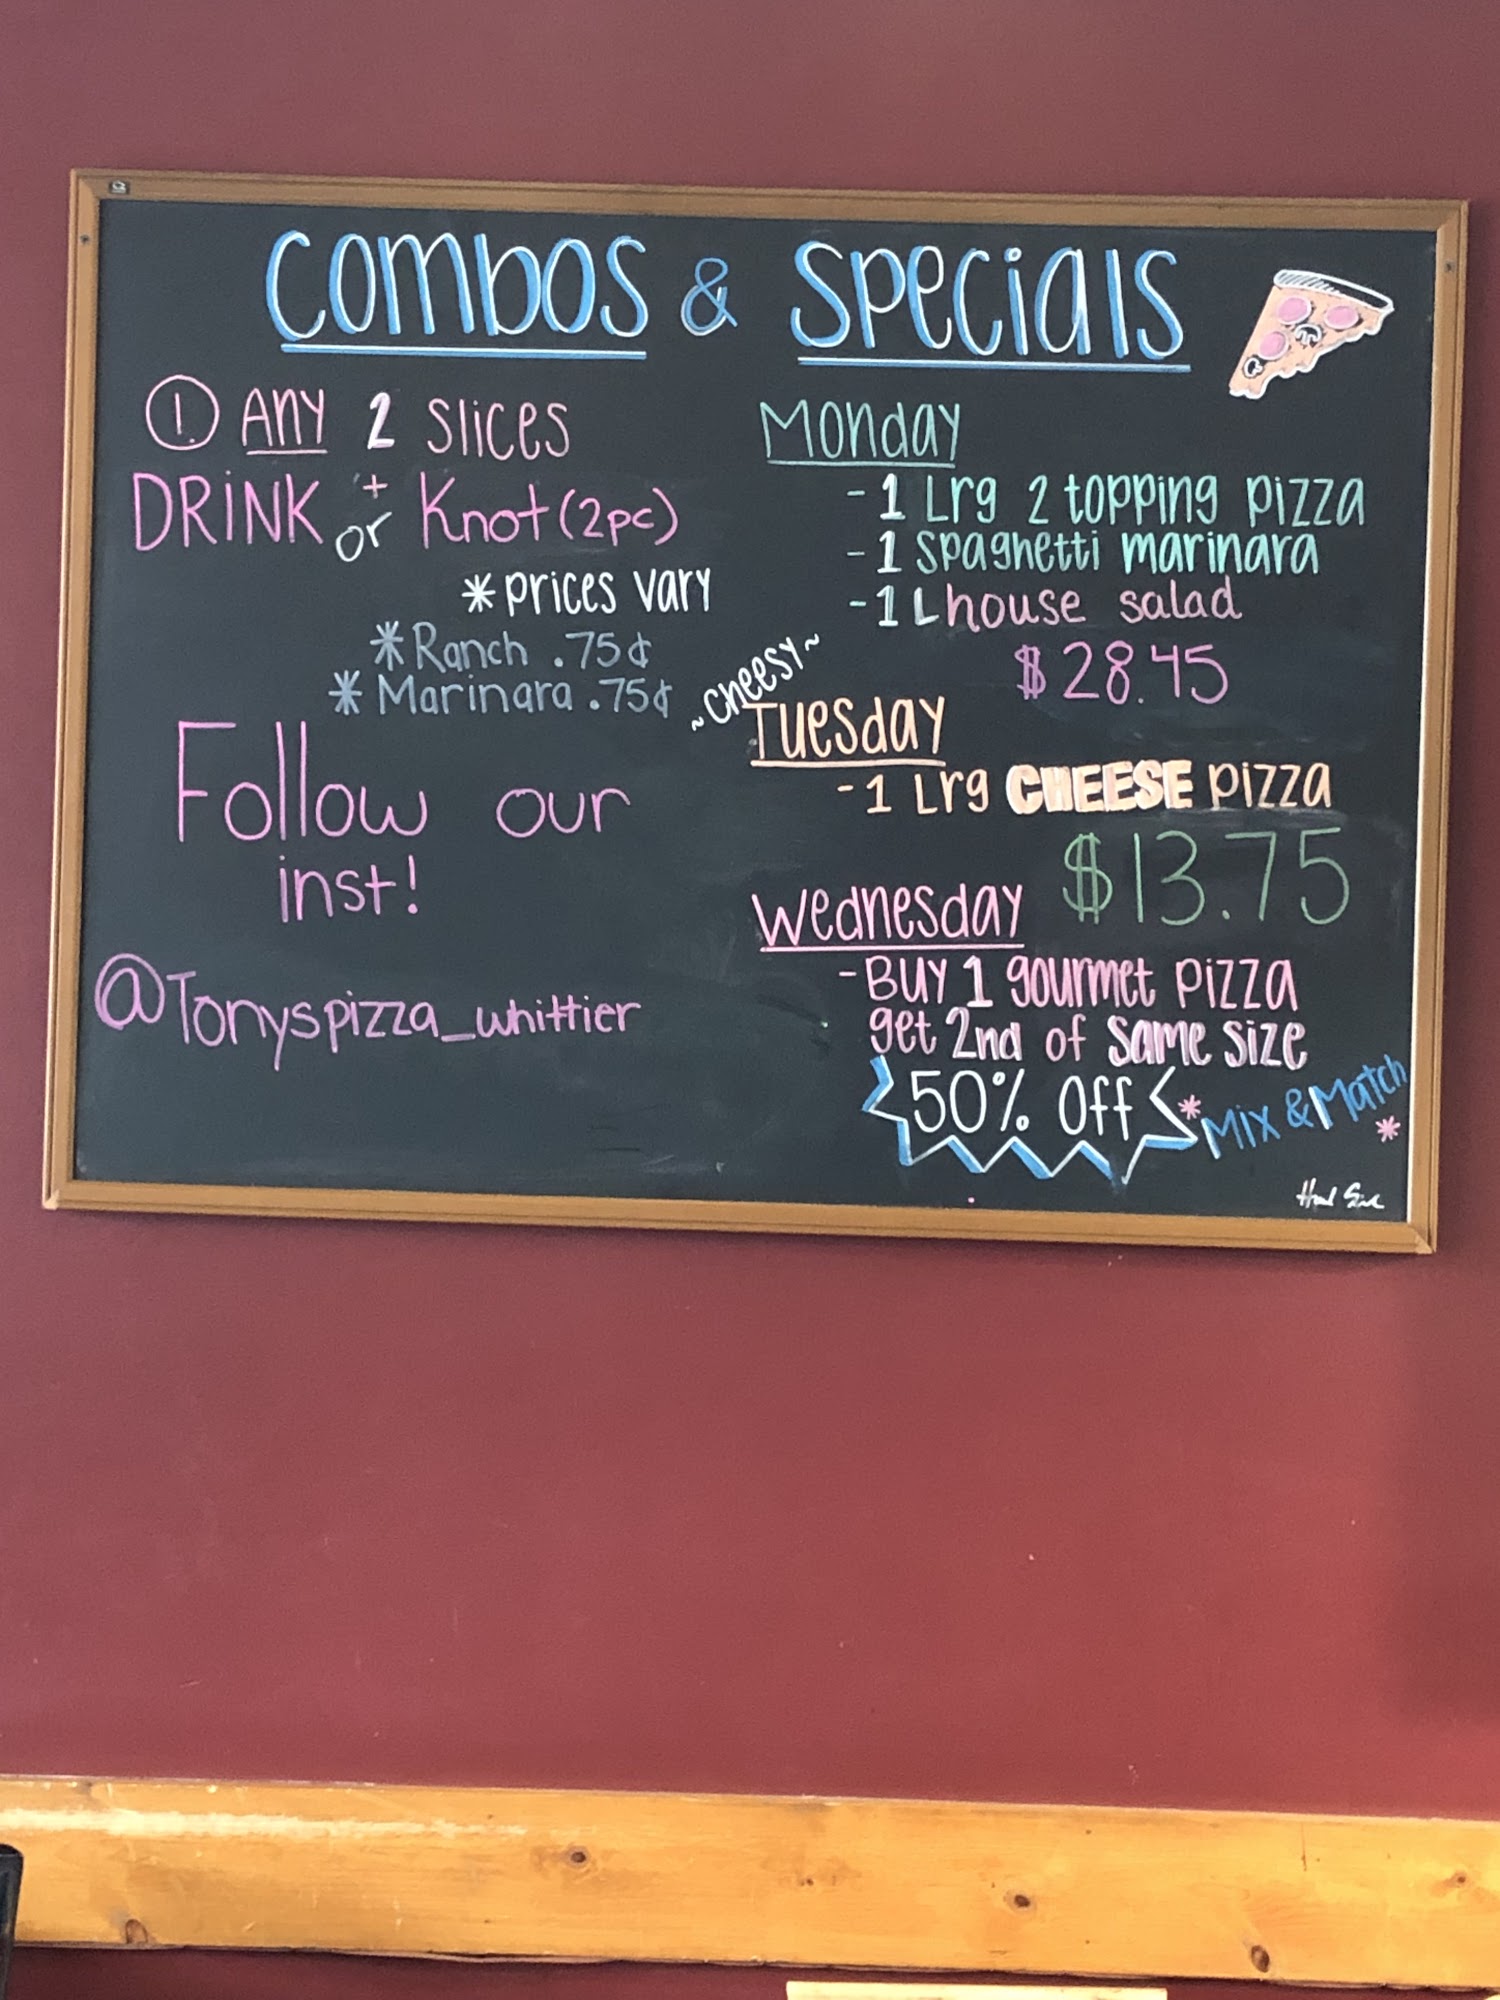 Combos & Specials
1. Any 2 Slices
+
DRiNK or Knot (2pc)
* prices vary
* Ranch .75¢
* Marinara .75¢
Follow our
inst!
@Tonyspizza_whittier
Monday
- 1 Lrg 2 topping pizza
- 1 spaghetti marinara
- 1 L house salad
$28.45
~cheesy~
Tuesday
- 1 Lrg CHEESE pizza
$13.75
Wednesday
- Buy 1 gourmet pizza
get 2nd of same size
50% Off
* Mix & Match *